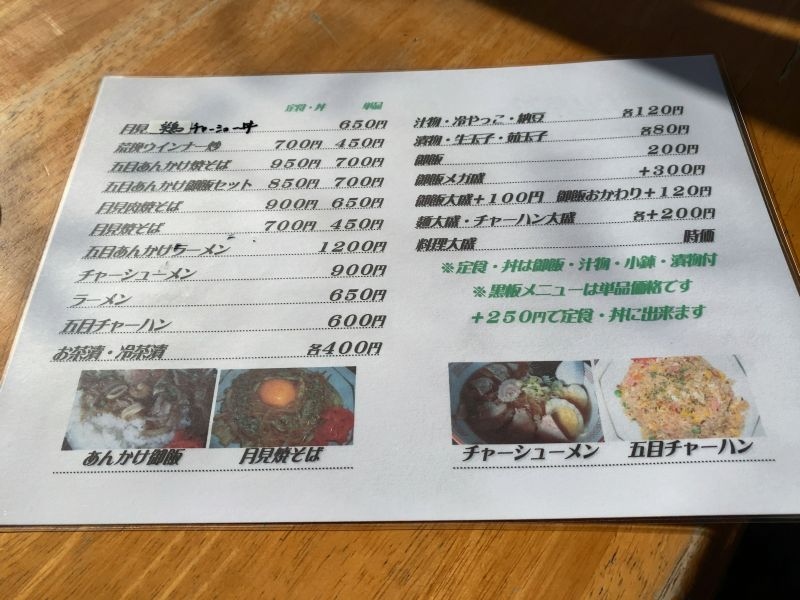 定食・丼 単品
月見 鶏チャーシュー丼 650円
荒挽ウインナー炒 700円 450円
五目あんかけ焼そば 950円 700円
五目あんかけ御飯セット 850円 700円
月見肉焼そば 900円 650円
月見焼そば 700円 450円
五目あんかけラーメン 1200円
チャーシューメン 900円
ラーメン 650円
五目チャーハン 600円
お茶漬・冷茶漬 各400円
あんかけ御飯 月見焼そば
汁物・冷やっこ・納豆 各120円
漬物・生玉子・茹玉子 各80円
御飯 200円
御飯メガ盛 +300円
御飯大盛+100円 御飯おかわり+120円
麺大盛・チャーハン大盛 各+200円
料理大盛 時価
※定食・丼は御飯・汁物・小鉢・漬物付
※黒板メニューは単品価格です
+250円で定食・丼に出来ます
チャーシューメン 五目チャーハン